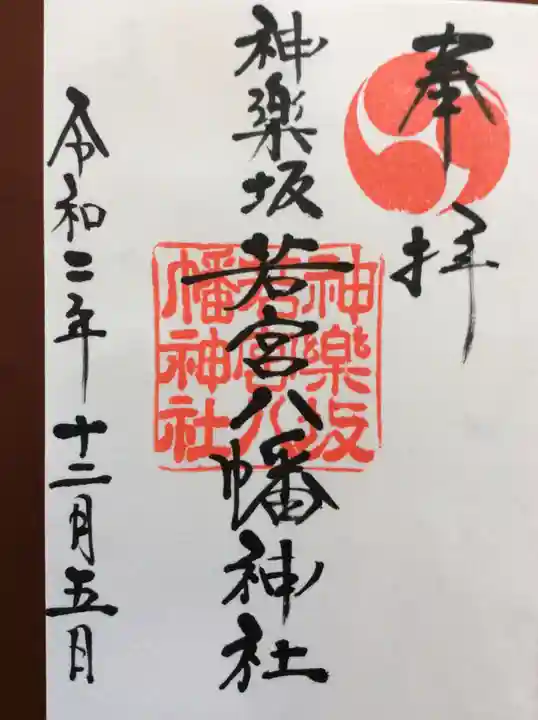 奉拝
神楽坂若宮八幡神社
神楽坂
若宮八
幡神社
令和二年十二月五日